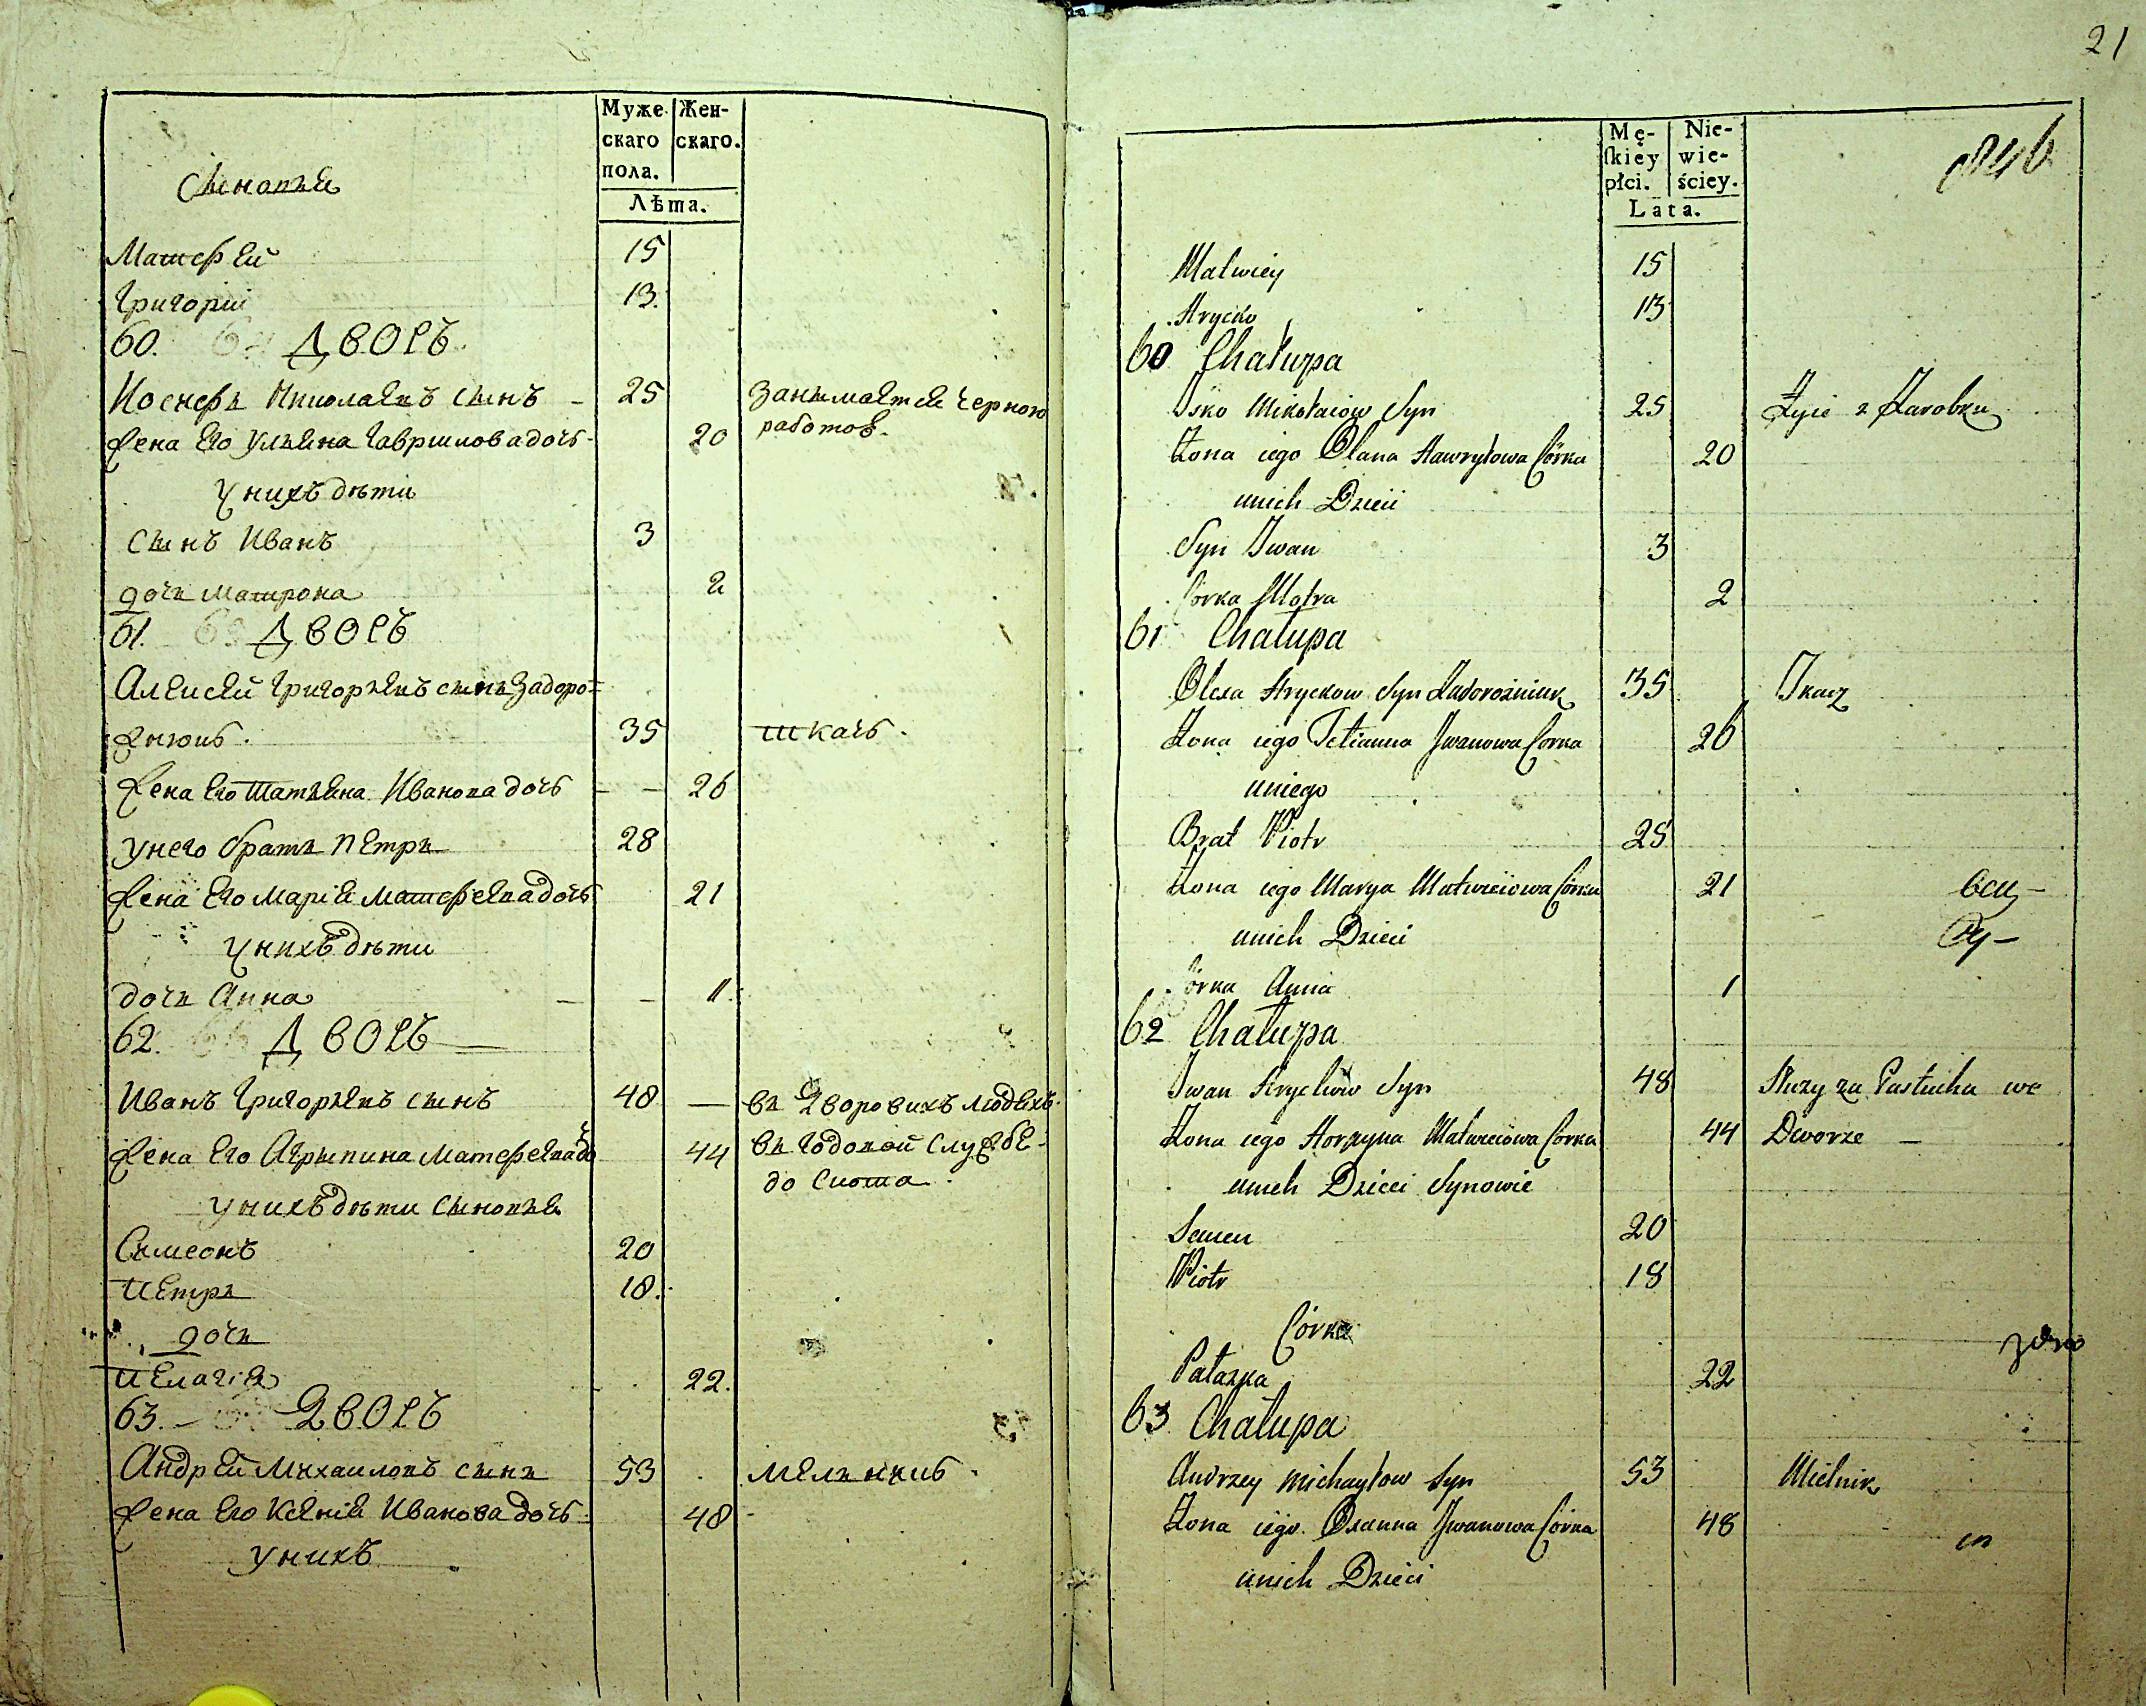 Муже-
скаго
пола.
Жен-
скаго.
Лѣта.
Сыновья
Матфей 15
Григорій 13.
60. ДВОРЪ
Иосифъ Николаевъ сынъ 25 Занимается черною
жена его Ульяна Гаврилова дочь 20 работою.
у нихъ дѣти
сынъ Иванъ 3
дочь Матрона 2
61. ДВОРЪ
Алексей Григорьевъ сынъ Задоро=
жнюкъ. 35 ткачъ.
жена его Татьяна Иванова дочь 26
у него братъ Петръ 28
жена его Марія Матфеева дочь 21
у нихъ дѣти
дочь Анна 1.
62. ДВОРЪ
Иванъ Григорьевъ сынъ 48 въ дворовихъ людехъ.
жена его Агрыпина Матфеева до 44 въ годовой службе
у нихъ дѣти сыновья до скота.
Симеонъ 20
Петръ 18.
дочь
Пелагія 22.
63. ДВОРЪ
Андрей Михаиловъ сынъ 53 мельникъ.
жена его Ксенія Иванова дочь 48
у нихъ
21
Mę-
ſkiéy
płci.
Nie-
wie-
ściey.
Lata.
Matwiey 15
Hrycko 13
60 Chałupa
Jśko Mikołaiów Syn 25 Żyie z Zarobku
Żona iego Olana Hawryłowa Córka 20
unich Dzieci
Syn Jwan 3
Córka Motra 2
61 Chałupa
Olexa Hryckow Syn Zadorożniuk 35 Tkacz
Żona iego Tetianna Jwanowa Corka 26
uniego
Brat Piotr 28
Żona iego Marya Matwieiowa Córka 21
unich Dzieci
Córka Anna 1
62 Chałupa
Jwan Hryckow Syn 48 Służy za Pastucha we
Żona iego Horpyna Matwieiowa Corka 44 Dworze —
unich Dzieci Synowie
Semen 20
Piotr 18
Córka
Pałazka 22
63 Chałupa
Andrzey Michayłow Syn 53 Mielnik
Żona iego Oxanna Jwanowa Córka 48
unich Dzieci